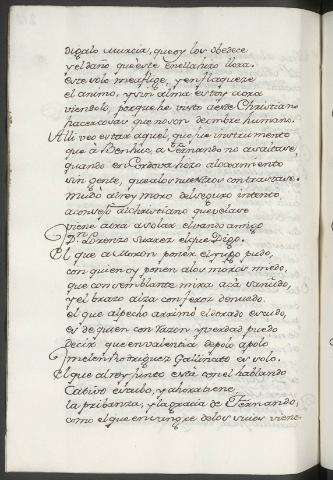 digalo Murcia, que oy los obedece
y el daño que este en ella hizo llora.
este solo me aflige, y enflaqueze
el animo, y sin alma estoy aora
viendolo, porque he visto a este Christiano
hacer cosas que no son de hombre humano.
Alli veo estar aquel, que fue instrumento
que a Benhuc, a Fernando no asaltase,
quando en Cordova hizo aloxamiento
sin gente, que a los nuestros contrastase.
mudó al rey moro del seguro intento,
aconsejó al christiano que velase
viene aora a velar el vando amigo
Dn. Lorenzo Suarez el que Digo.
El que a Moron poner el yugo pudo,
con quien oy ponen a los moros miedo,
que con semblante mira acá sañudo,
y el brazo alza con feroz denuedo.
el que al pecho arrimó el dorado escudo,
es de quien con razon y verdad puedo
decir que en valencia depolo apolo
melen Rodriguez Gallinato es solo.
El que al rey junto está con el hablando
Cativo estubo, y ahora tiene
la pribanza, y la gracia de Fernando,
como el que en sangre de los suios viene